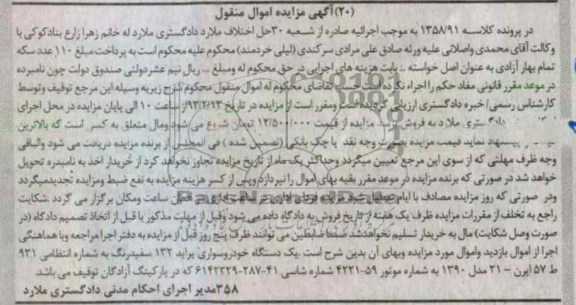 (۲۰) آگهی مزایده اموال منقول
در پرونده کلاسه ۱۳۵۸/۹۱ به موجب اجرائیه صادره از شعبه ۳۰ حل اختلاف ملارد دادگستری ملارد له خانم زهرا زارع بنادکوکی با
وکالت آقای محمدی واصلانی علیه ورثه صادق علی مرادی سرکندی (لیلی خردمند) محکوم علیه محکوم است به پرداخت مبلغ ۱۱۰ عدد سکه
تمام بهار آزادی به عنوان اصل خواسته بابت هزینه های اجرایی در حق محکوم له ومبلغ ... ریال نیم عشر دولتی صندوق دولت چون نامبرده
در موعد مقرر قانونی مفاد حکم را اجراء نکرده است حسب تقاضای محکوم له اموال منقول محکوم شرح زیربه وسیله این مرجع توقیف وتوسط
کارشناس رسمی/خبره دادگستری ارزیابی گردیده است ومقرر است از مزایده در تاریخ ۹۳/۲/۱۳ ساعت ۱۰ الی پایان مزایده در محل اجرای
دادگستری ملارد به فروش برسد مزایده از قیمت ۱۲/۵۰۰/۰۰۰ تومان شروع می شود ومال متعلق به کسی است که بالاترین
پیشنهاد نماید قیمت مزایده بصورت وجه نقد یا چک بانکی (تضمین شده) فی المجلس از برنده مزایده دریافت می شود والباقی
وجه ظرف مهلتی که از سوی این مرجع تعیین میگردد وحداکثر یک ماه از تاریخ مزایده تجاوز نخواهد کرد از خریدار اخذ به نامبرده تحویل
خواهد شد در صورتی که برنده مزایده در موعد مقرر بقیه بهای اموال را نپردازد وپس از کسر هزینه مزایده به نفع ضبط ومزایده تجدیدمیگردد
ودر صورتی که روز مزایده مصادف با ایام تعطیل شود مزایده روز بعد از تعطیلی در همان ساعت ومکان برگزار می گردد شکایت
راجع به تخلف از مقررات مزایده ظرف یک هفته از تاریخ فروش به دادگاه داده می شود وقبل از مهلت مذکور یا قبل از اتخاذ تصمیم دادگاه (در
صورت وصل شکایت) مال به خریدار تسلیم نخواهد شد ضمنا متقاضین می توانند ظرف پنج روز قبل از مزایده به دفتر اجرا مراجعه وبا هماهنگی
اجرا از اموال بازدید واموال مورد مزایده وبهای آن بدین شرح است یک دستگاه خودروسواری پراید ۱۳۲ سفیدرنگ به شماره انتظامی ۹۳۱
ط ۵۷ ایرن - ۲۱ مدل ۱۳۹۰ به شماره موتور ۴۲۲۱۰۵۹ شماره شاسی ۶۱۴۲۲۲۹۰۲۸۷۰۴۱ که در پارکینگ آزادگان توقیف می باشد
۳۵۸ مدیر اجرای احکام مدنی دادگستری ملارد